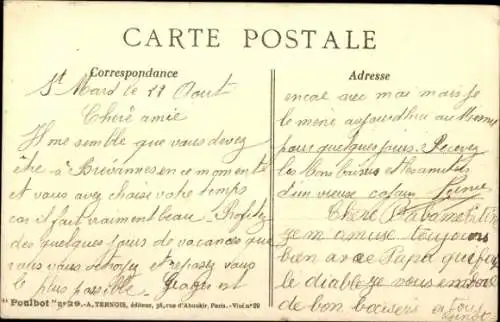 CARTE POSTALE
Correspondance
St Mard le 11 Août
Chère amie
Il me semble que vous devez
être à Brévannes en ce moment
et vous avez choisi votre temps
car il fait vraiment beau. Profitez
des quelques jours de vacances que
vous vous octroyez et reposez vous
le plus possible.
"Poulbot" n° 29. - A. TERNOIS, éditeur, 38, rue d'Aboukir, Paris. - Visé n° 29
Adresse
encore avec moi mais je
le mène aujourd'hui au
pour quelques jours. Recevez
les bons baisers et les amitiés
d'un vieux
Chère
je m amuse toujours
bien avec Papa qui fait
le diable je vous envoie
de bon baisers a tous